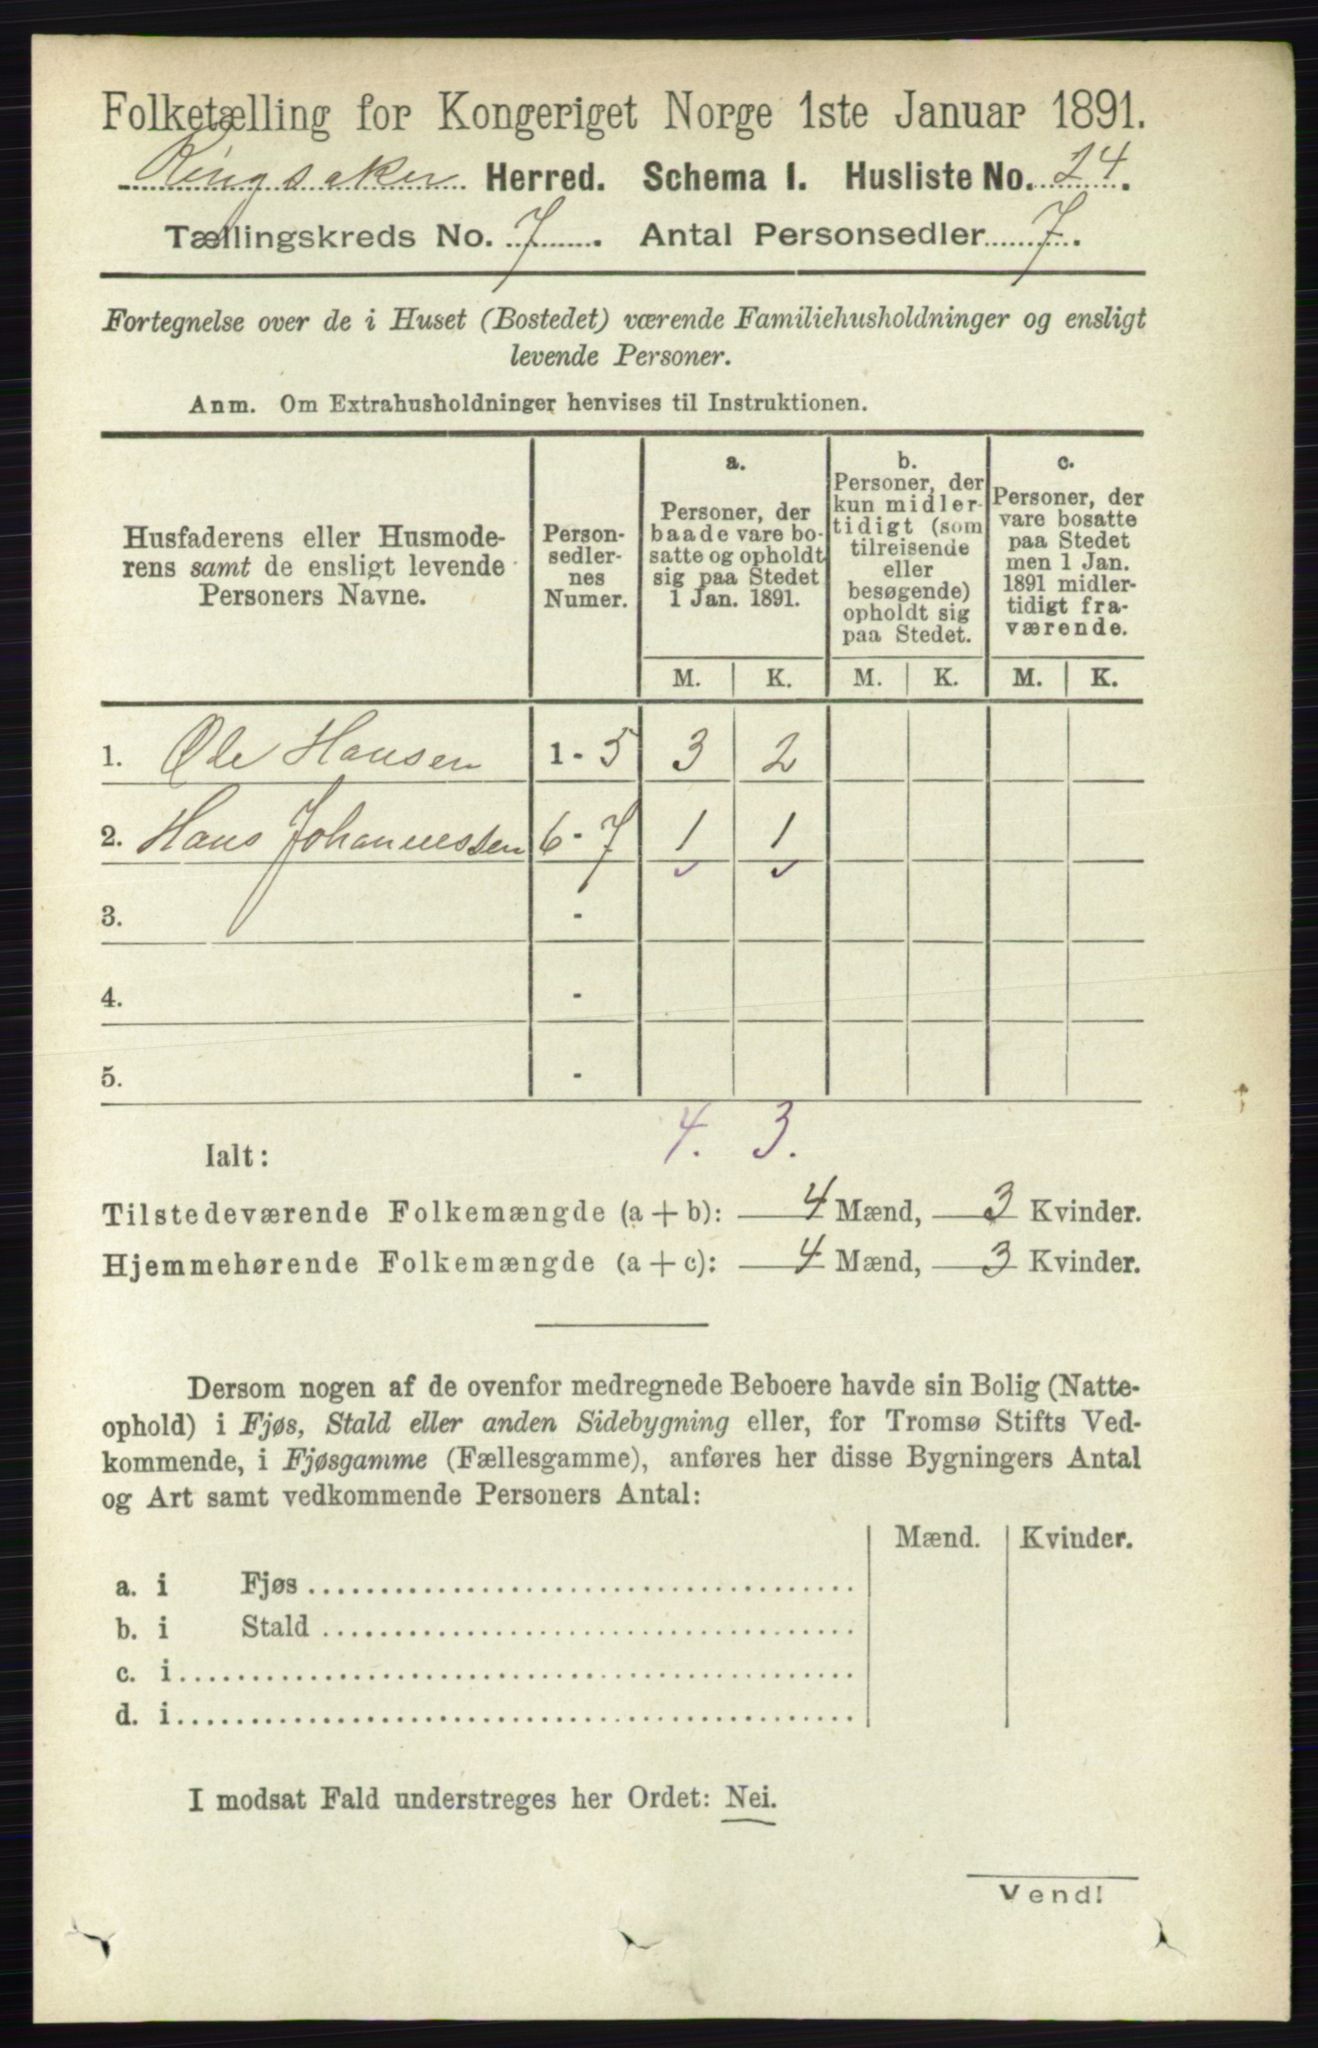 Folketælling for Kongeriget Norge 1ste Januar 1891.
Ringsaker Herred. Schema I. Husliste No. 24.
Tællingskreds No. 7. Antal Personsedler 7.
Fortegnelse over de i Huset (Bostedet) værende Familiehusholdninger og ensligt
levende Personer.
Anm. Om Extrahusholdninger henvises til Instruktionen.
Husfaderens eller Husmode-
rens samt de ensligt levende
Personers Navne.
Person-
sedler-
nes
Numer.
a.
Personer, der
baade vare bo-
satte og opholdt
sig paa Stedet
1 Jan. 1891.
b.
Personer, der
kun midler-
tidigt (som
tilreisende
eller
besøgende)
opholdt sig
paa Stedet.
c.
Personer, der
vare bosatte
paa Stedet
men 1 Jan.
1891 midler-
tidigt fra-
værende.
M. K. M. K. M. K.
1. Ole Hansen 1 - 5 3 2
2. Hans Johannessen 6 - 7 1 1
3. -
4. -
5. -
4. 3.
Ialt:
Tilstedeværende Folkemængde (a + b): 4 Mænd, 3 Kvinder.
Hjemmehørende Folkemængde (a + c): 4 Mænd, 3 Kvinder.
Dersom nogen af de ovenfor medregnede Beboere havde sin Bolig (Natte-
ophold) i Fjøs, Stald eller anden Sidebygning eller, for Tromsø Stifts Ved-
kommende, i Fjøsgamme (Fællesgamme), anføres her disse Bygningers Antal
og Art samt vedkommende Personers Antal:
Mænd. Kvinder.
a. i Fjøs
b. i Stald
c. i
d. i
I modsat Fald understreges her Ordet: Nei.
Vend!